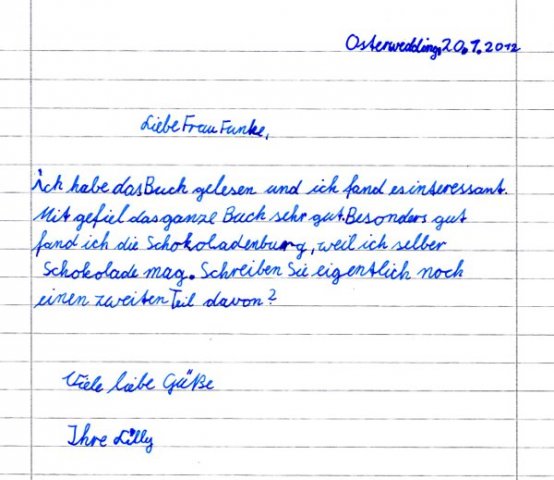 Osterwedding, 20.1.2012
Liebe Frau Funke,
ich habe das Buch gelesen und ich fand es interessant.
Mit gefiel das ganze Buch sehr gut. Besonders gut
fand ich die Schokoladenburg, weil ich selber
Schokolade mag. Schreiben Sie eigentlich noch
einen zweiten Teil davon?
Viele liebe Güße
Ihre Lilly